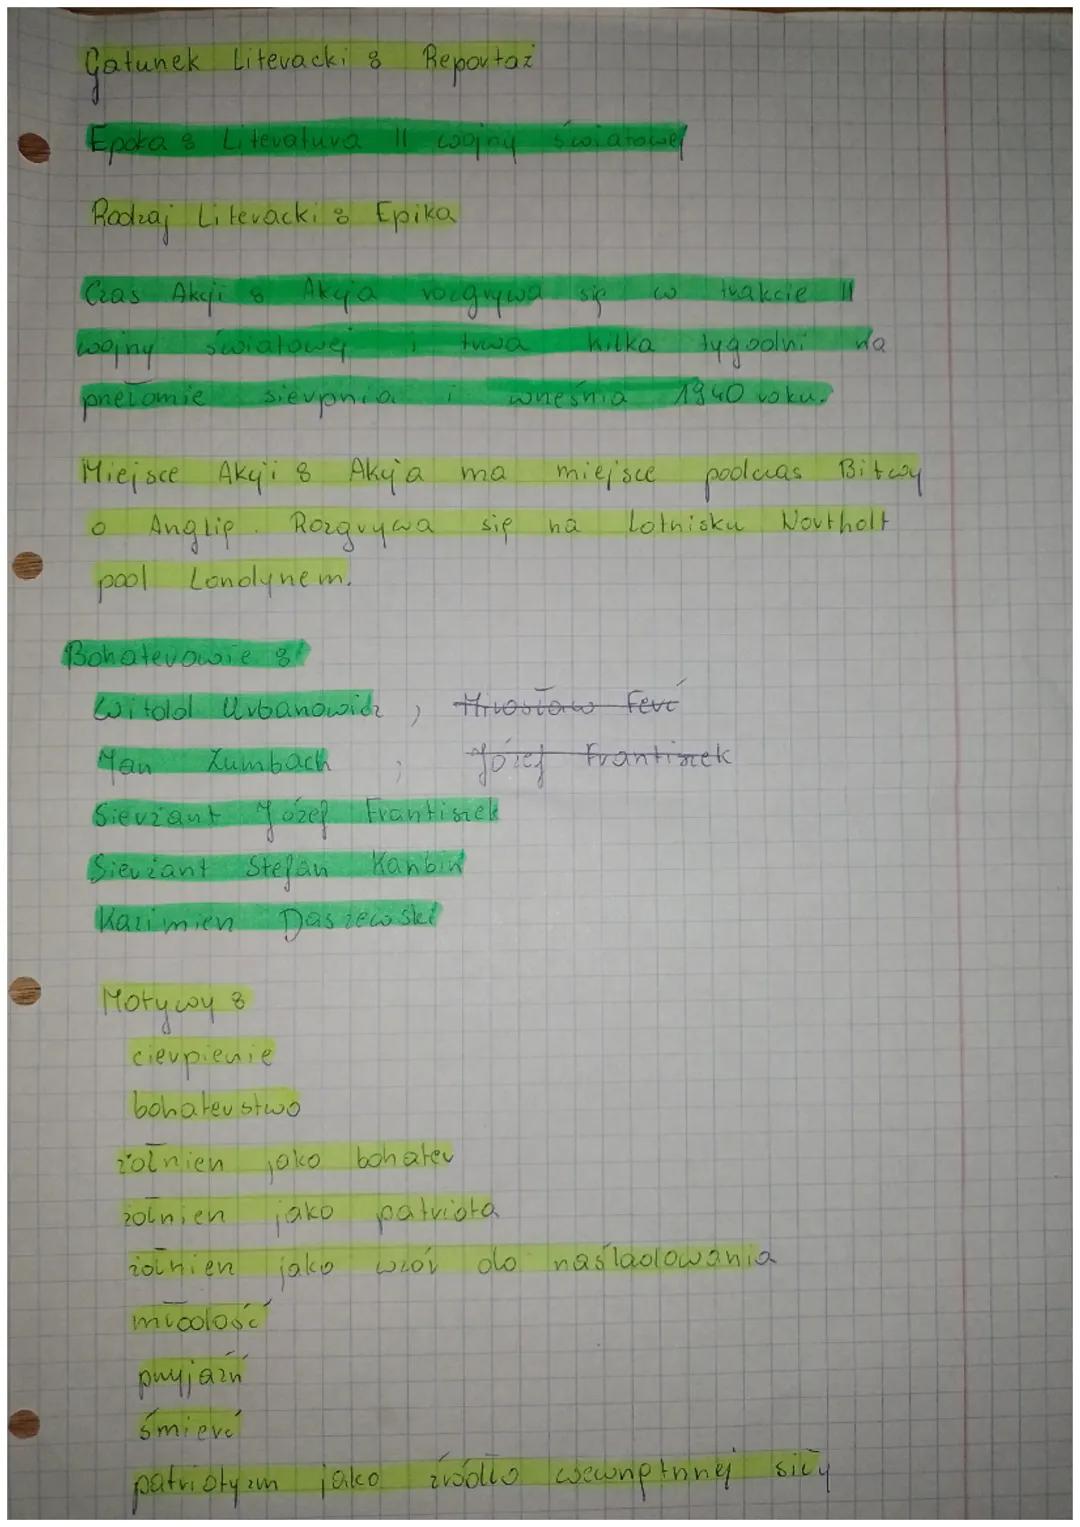 Gatunek Literacki : Reportaż
Epoka : Literatura II wojny światowej
Rodzaj Literacki : Epika
Czas Akcji : Akcja rozgrywa się w trakcie II
wojny światowej i trwa kilka tygodni na
przełomie sierpnia i września 1940 roku.
Miejsce Akcji : Akcja ma miejsce podczas Bitwy
o Anglię. Rozgrywa się na lotnisku Northolt
pod Londynem.
Bohaterowie :
Witold Urbanowicz , Mirosław Ferić
Jan Zumbach , Józef Frantiszek
Sierżant Józef Frantiszek
Sierżant Stefan
Kazimierz Daszewski
Motywy :
cierpienie
bohaterstwo
żołnierz jako bohater
żołnierz jako patriota
żołnierz jako wzór do naśladowania
młodość
przyjaźń
śmierć
patriotyzm jako źródło wewnętrznej siły